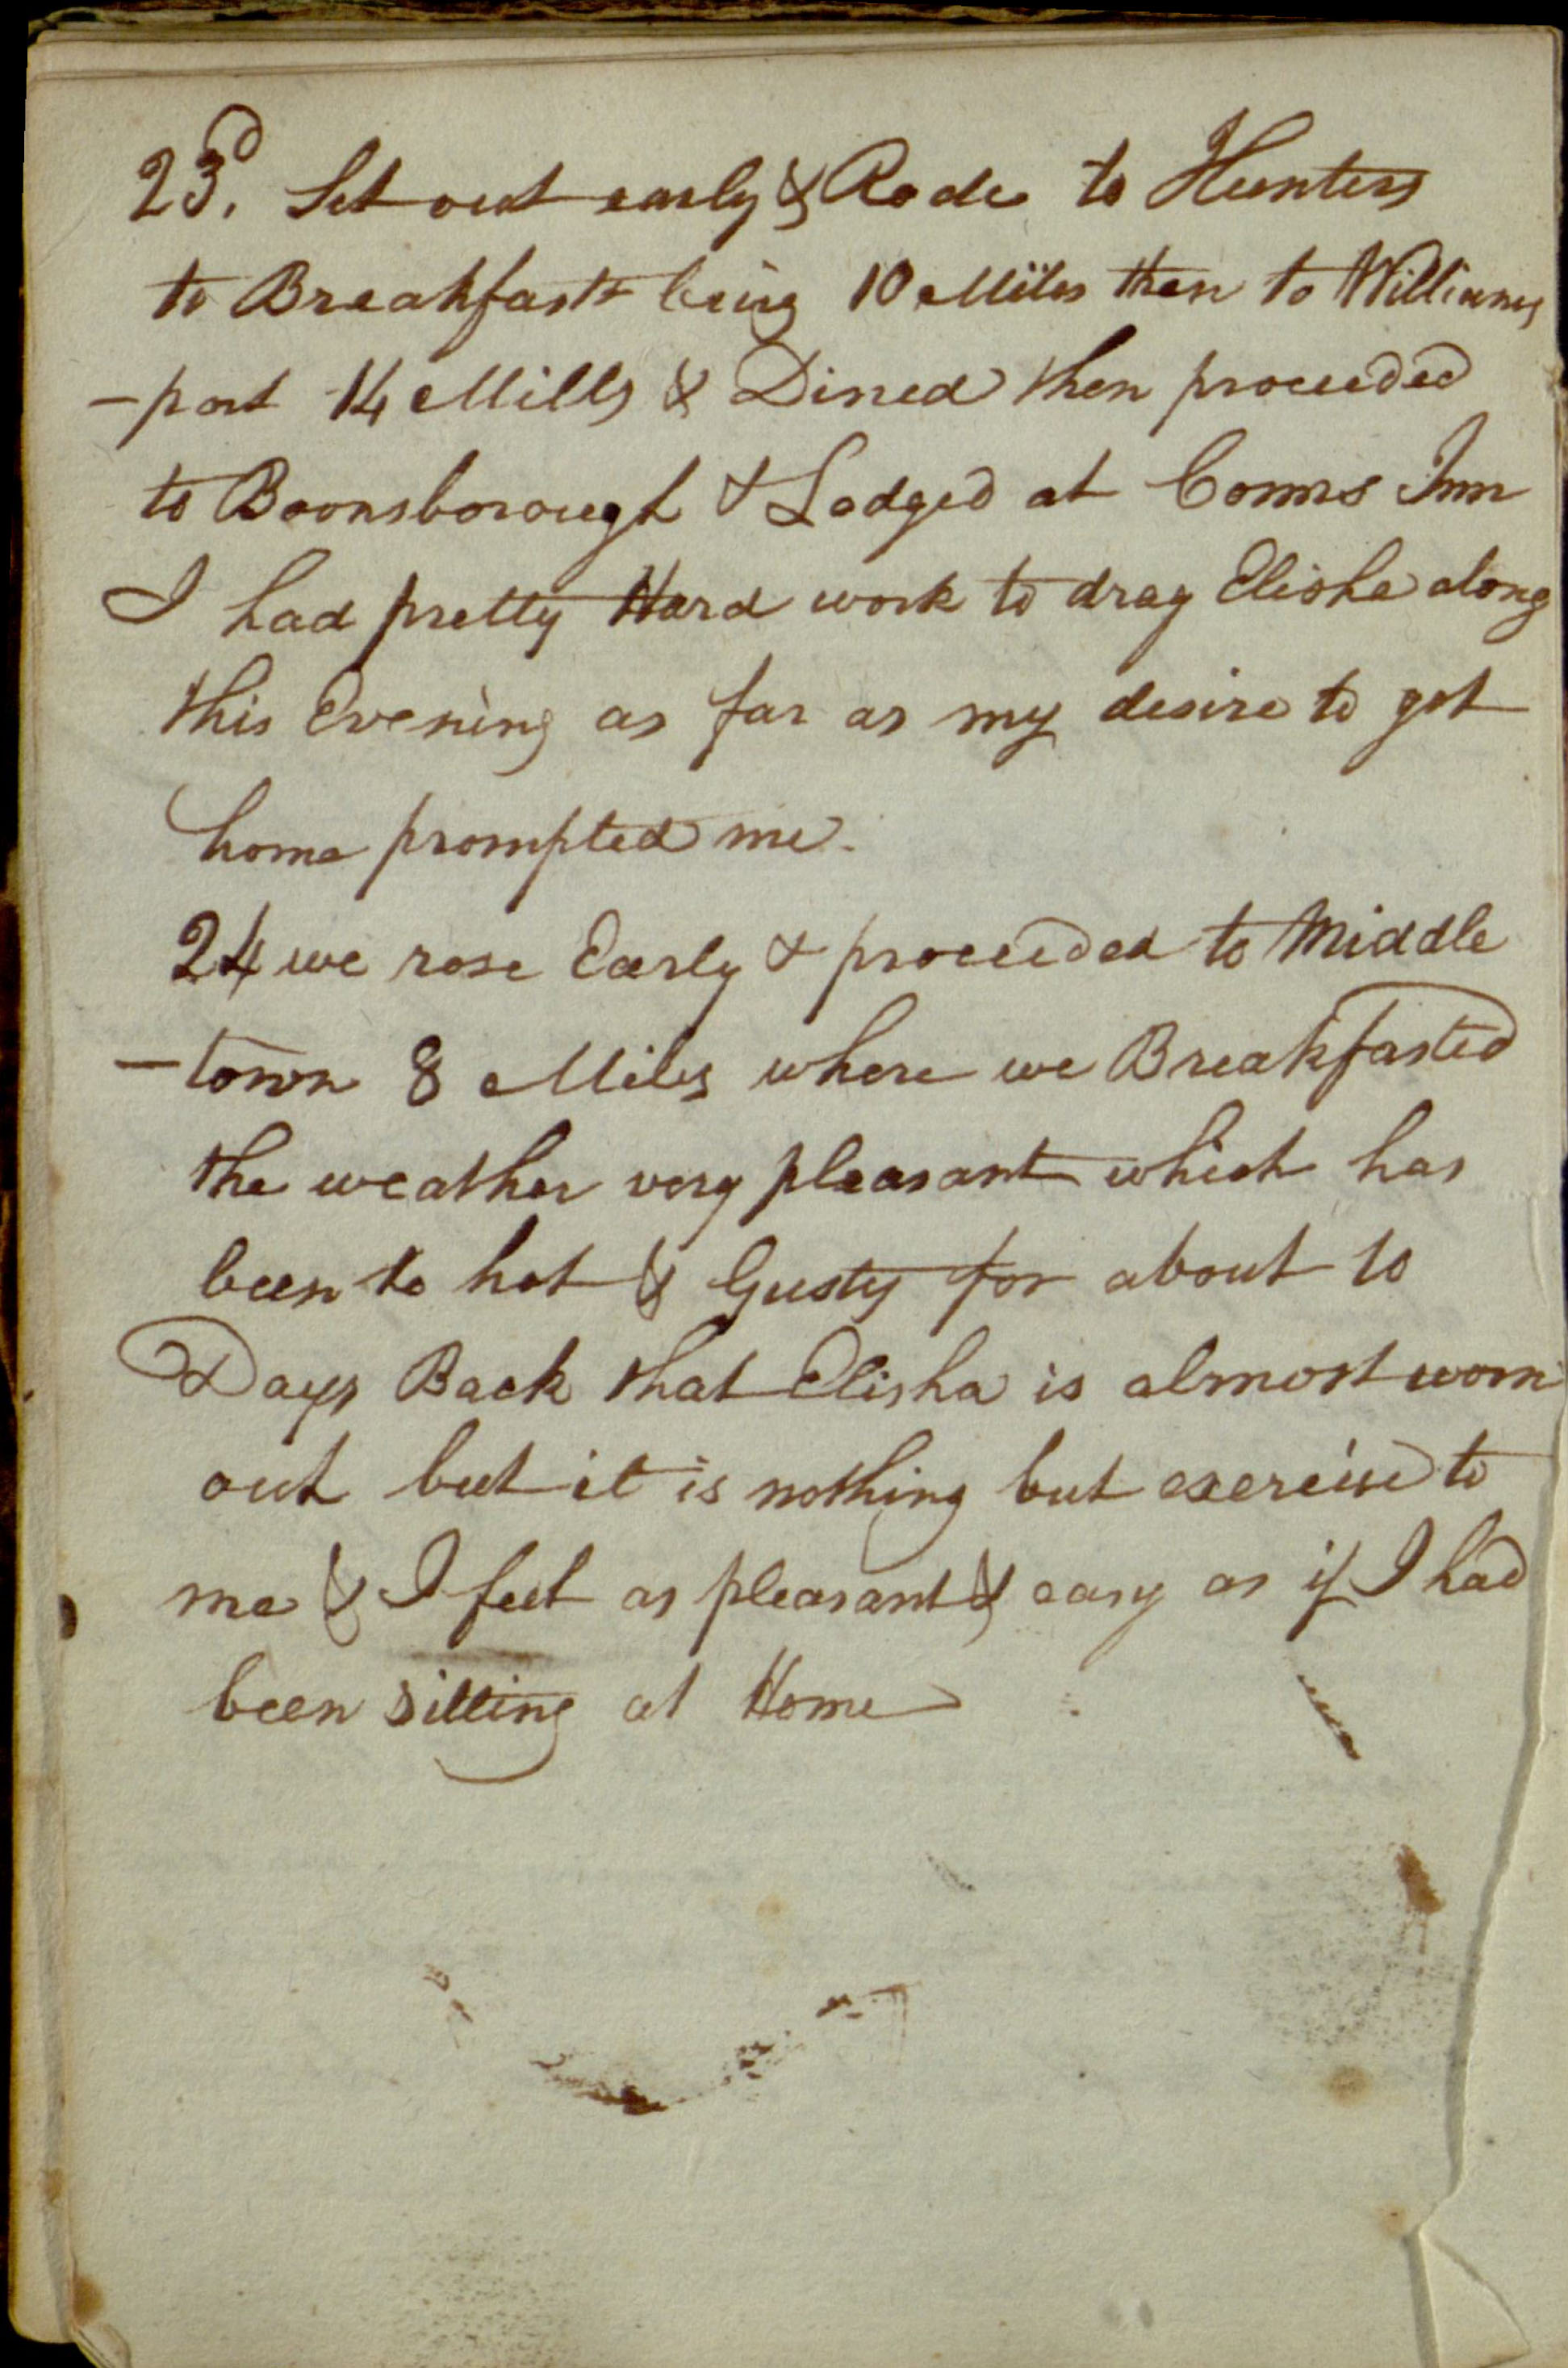 23d. Set out early & Rode to Hunters
to Breakfast being 10 Miles then to Williams
-port 14 Mills & Dined then proceeded
to Boonsborough & Lodged at Conns Inn
I had pretty Hard work to drag Elisha along
this Evening as far as my desire to get
home prompted me.
24 we rose Early & proceeded to Middle
-town 8 Miles where we Breakfasted
the weather very pleasant which has
been so hot & Gusty for about 10
Days Back that Elisha is almost worn
out but it is nothing but exercise to
me & I feel as pleasant & easy as if I had
been sitting at Home